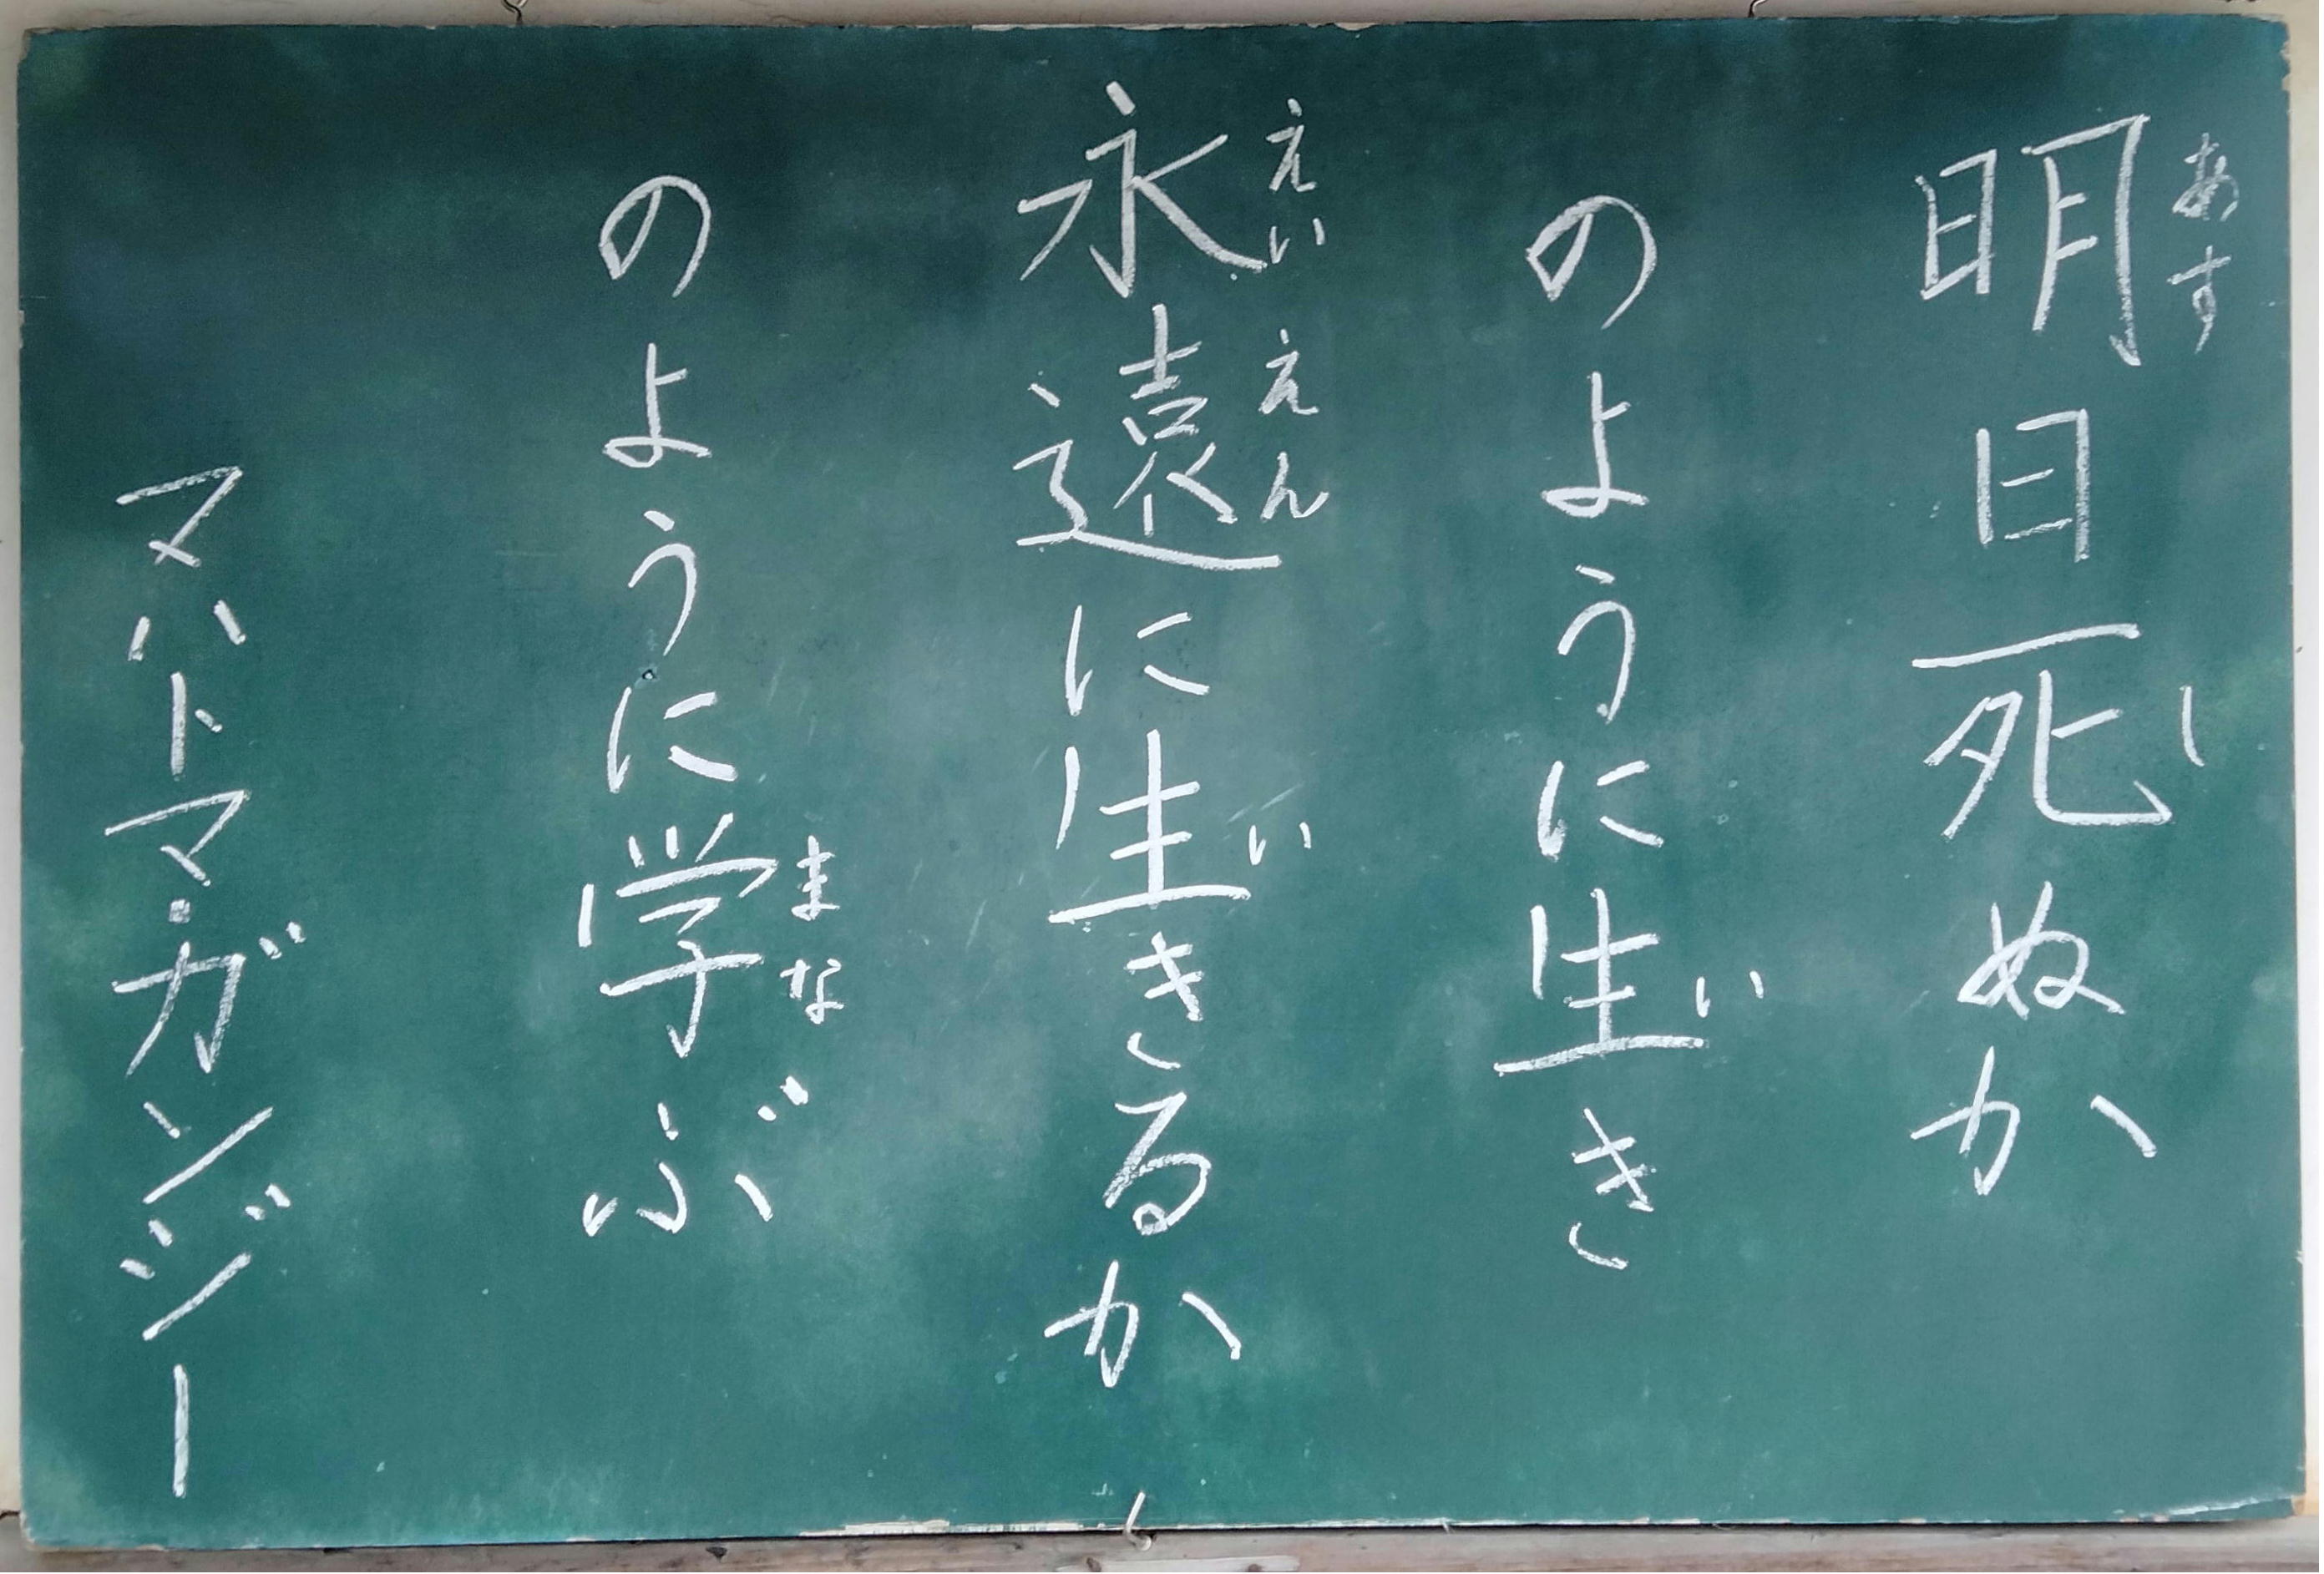 明日死ぬか
あす
し
のように生き
い
永遠に生きるか
えいえん
い
のように学ぶ
まな
マハトマ・ガンジー